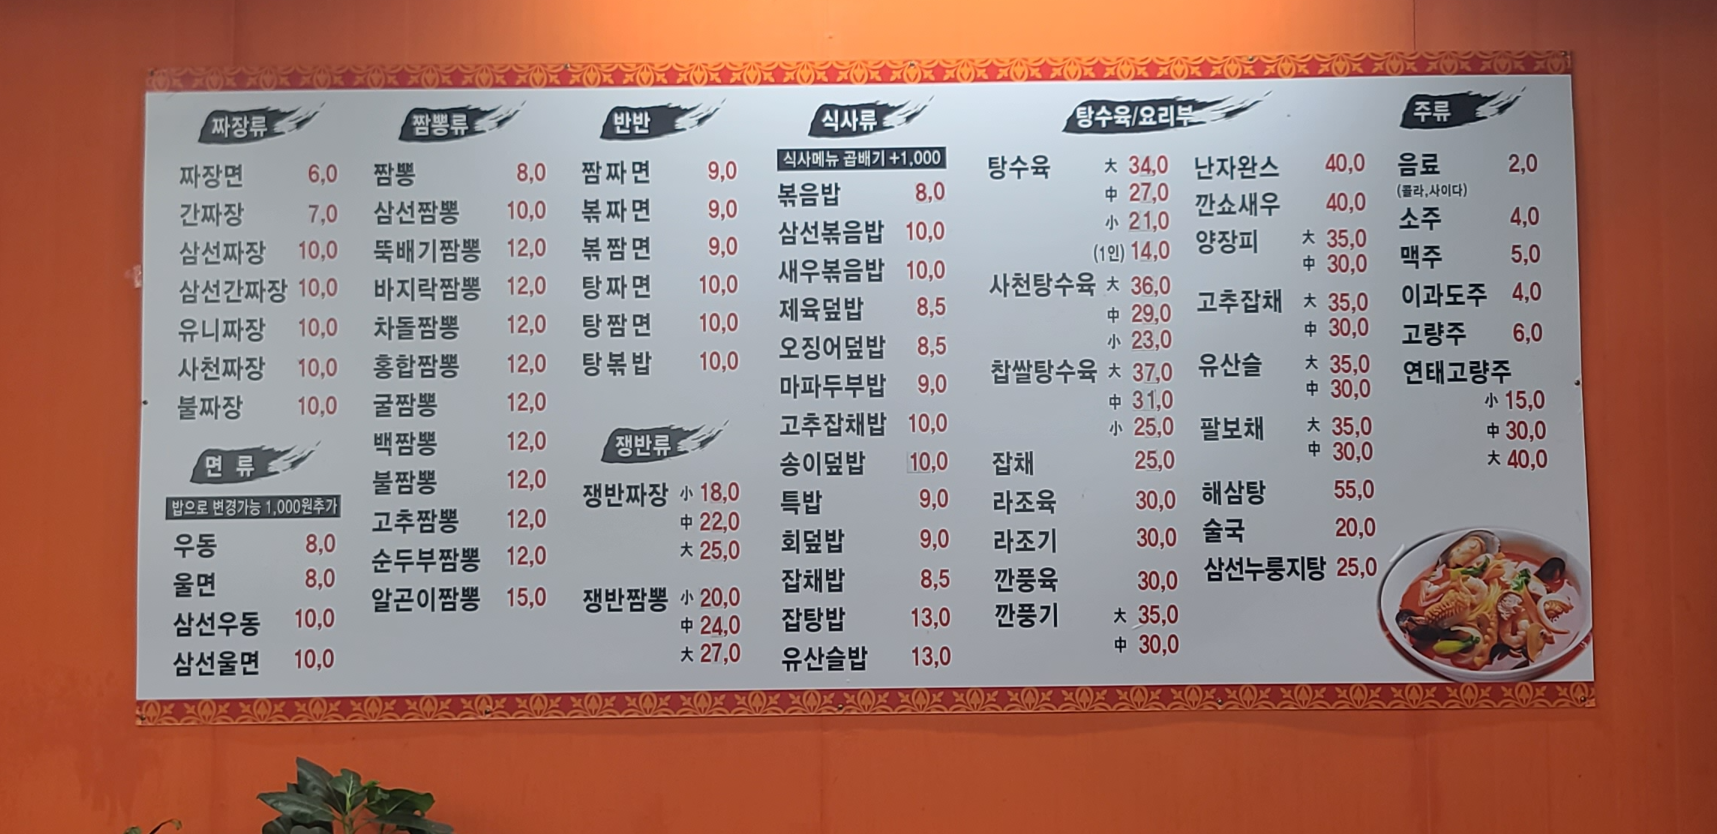 짜장류
짜장면 6,0
간짜장 7,0
삼선짜장 10,0
삼선간짜장 10,0
유니짜장 10,0
사천짜장 10,0
불짜장 10,0
면 류
밥으로 변경가능 1,000원추가
우동 8,0
울면 8,0
삼선우동 10,0
삼선울면 10,0
짬뽕류
짬뽕 8,0
삼선짬뽕 10,0
뚝배기짬뽕 12,0
바지락짬뽕 12,0
차돌짬뽕 12,0
홍합짬뽕 12,0
굴짬뽕 12,0
백짬뽕 12,0
불짬뽕 12,0
고추짬뽕 12,0
순두부짬뽕 12,0
알곤이짬뽕 15,0
반반
짬짜면 9,0
볶짜면 9,0
볶짬면 9,0
탕짜면 10,0
탕짬면 10,0
탕볶밥 10,0
쟁반류
쟁반짜장 小 18,0
中 22,0
大 25,0
쟁반짬뽕 小 20,0
中 24,0
大 27,0
식사류
식사메뉴 곱배기 +1,000
볶음밥 8,0
삼선볶음밥 10,0
새우볶음밥 10,0
제육덮밥 8,5
오징어덮밥 8,5
마파두부밥 9,0
고추잡채밥 10,0
송이덮밥 10,0
특밥 9,0
회덮밥 9,0
잡채밥 8,5
잡탕밥 13,0
유산슬밥 13,0
탕수육/요리부
탕수육 大 34,0
中 27,0
小 21,0
(1인) 14,0
사천탕수육 大 36,0
中 29,0
小 23,0
찹쌀탕수육 大 37,0
中 31,0
小 25,0
잡채 25,0
라조육 30,0
라조기 30,0
깐풍육 30,0
깐풍기 大 35,0
中 30,0
난자완스 40,0
깐쇼새우 40,0
양장피 大 35,0
中 30,0
고추잡채 大 35,0
中 30,0
유산슬 大 35,0
中 30,0
팔보채 大 35,0
中 30,0
해삼탕 55,0
술국 20,0
삼선누룽지탕 25,0
주류
음료 2,0
(콜라,사이다)
소주 4,0
맥주 5,0
이과도주 4,0
고량주 6,0
연태고량주
小 15,0
中 30,0
大 40,0